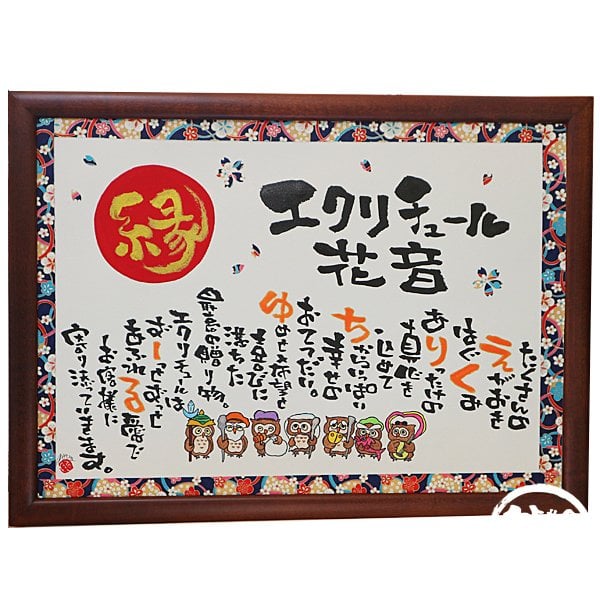 縁
エクリチュール
花音
たくさんの
えがおを
はぐくみ
ありったけの
真心を
こめて
ちからいっぱい
幸せの
おてつだい。
ゆめも希望も
喜びに
満ちた
最高の贈り物。
エクリチュールは
あふれる夢で
お客様に
寄り添っていきます。